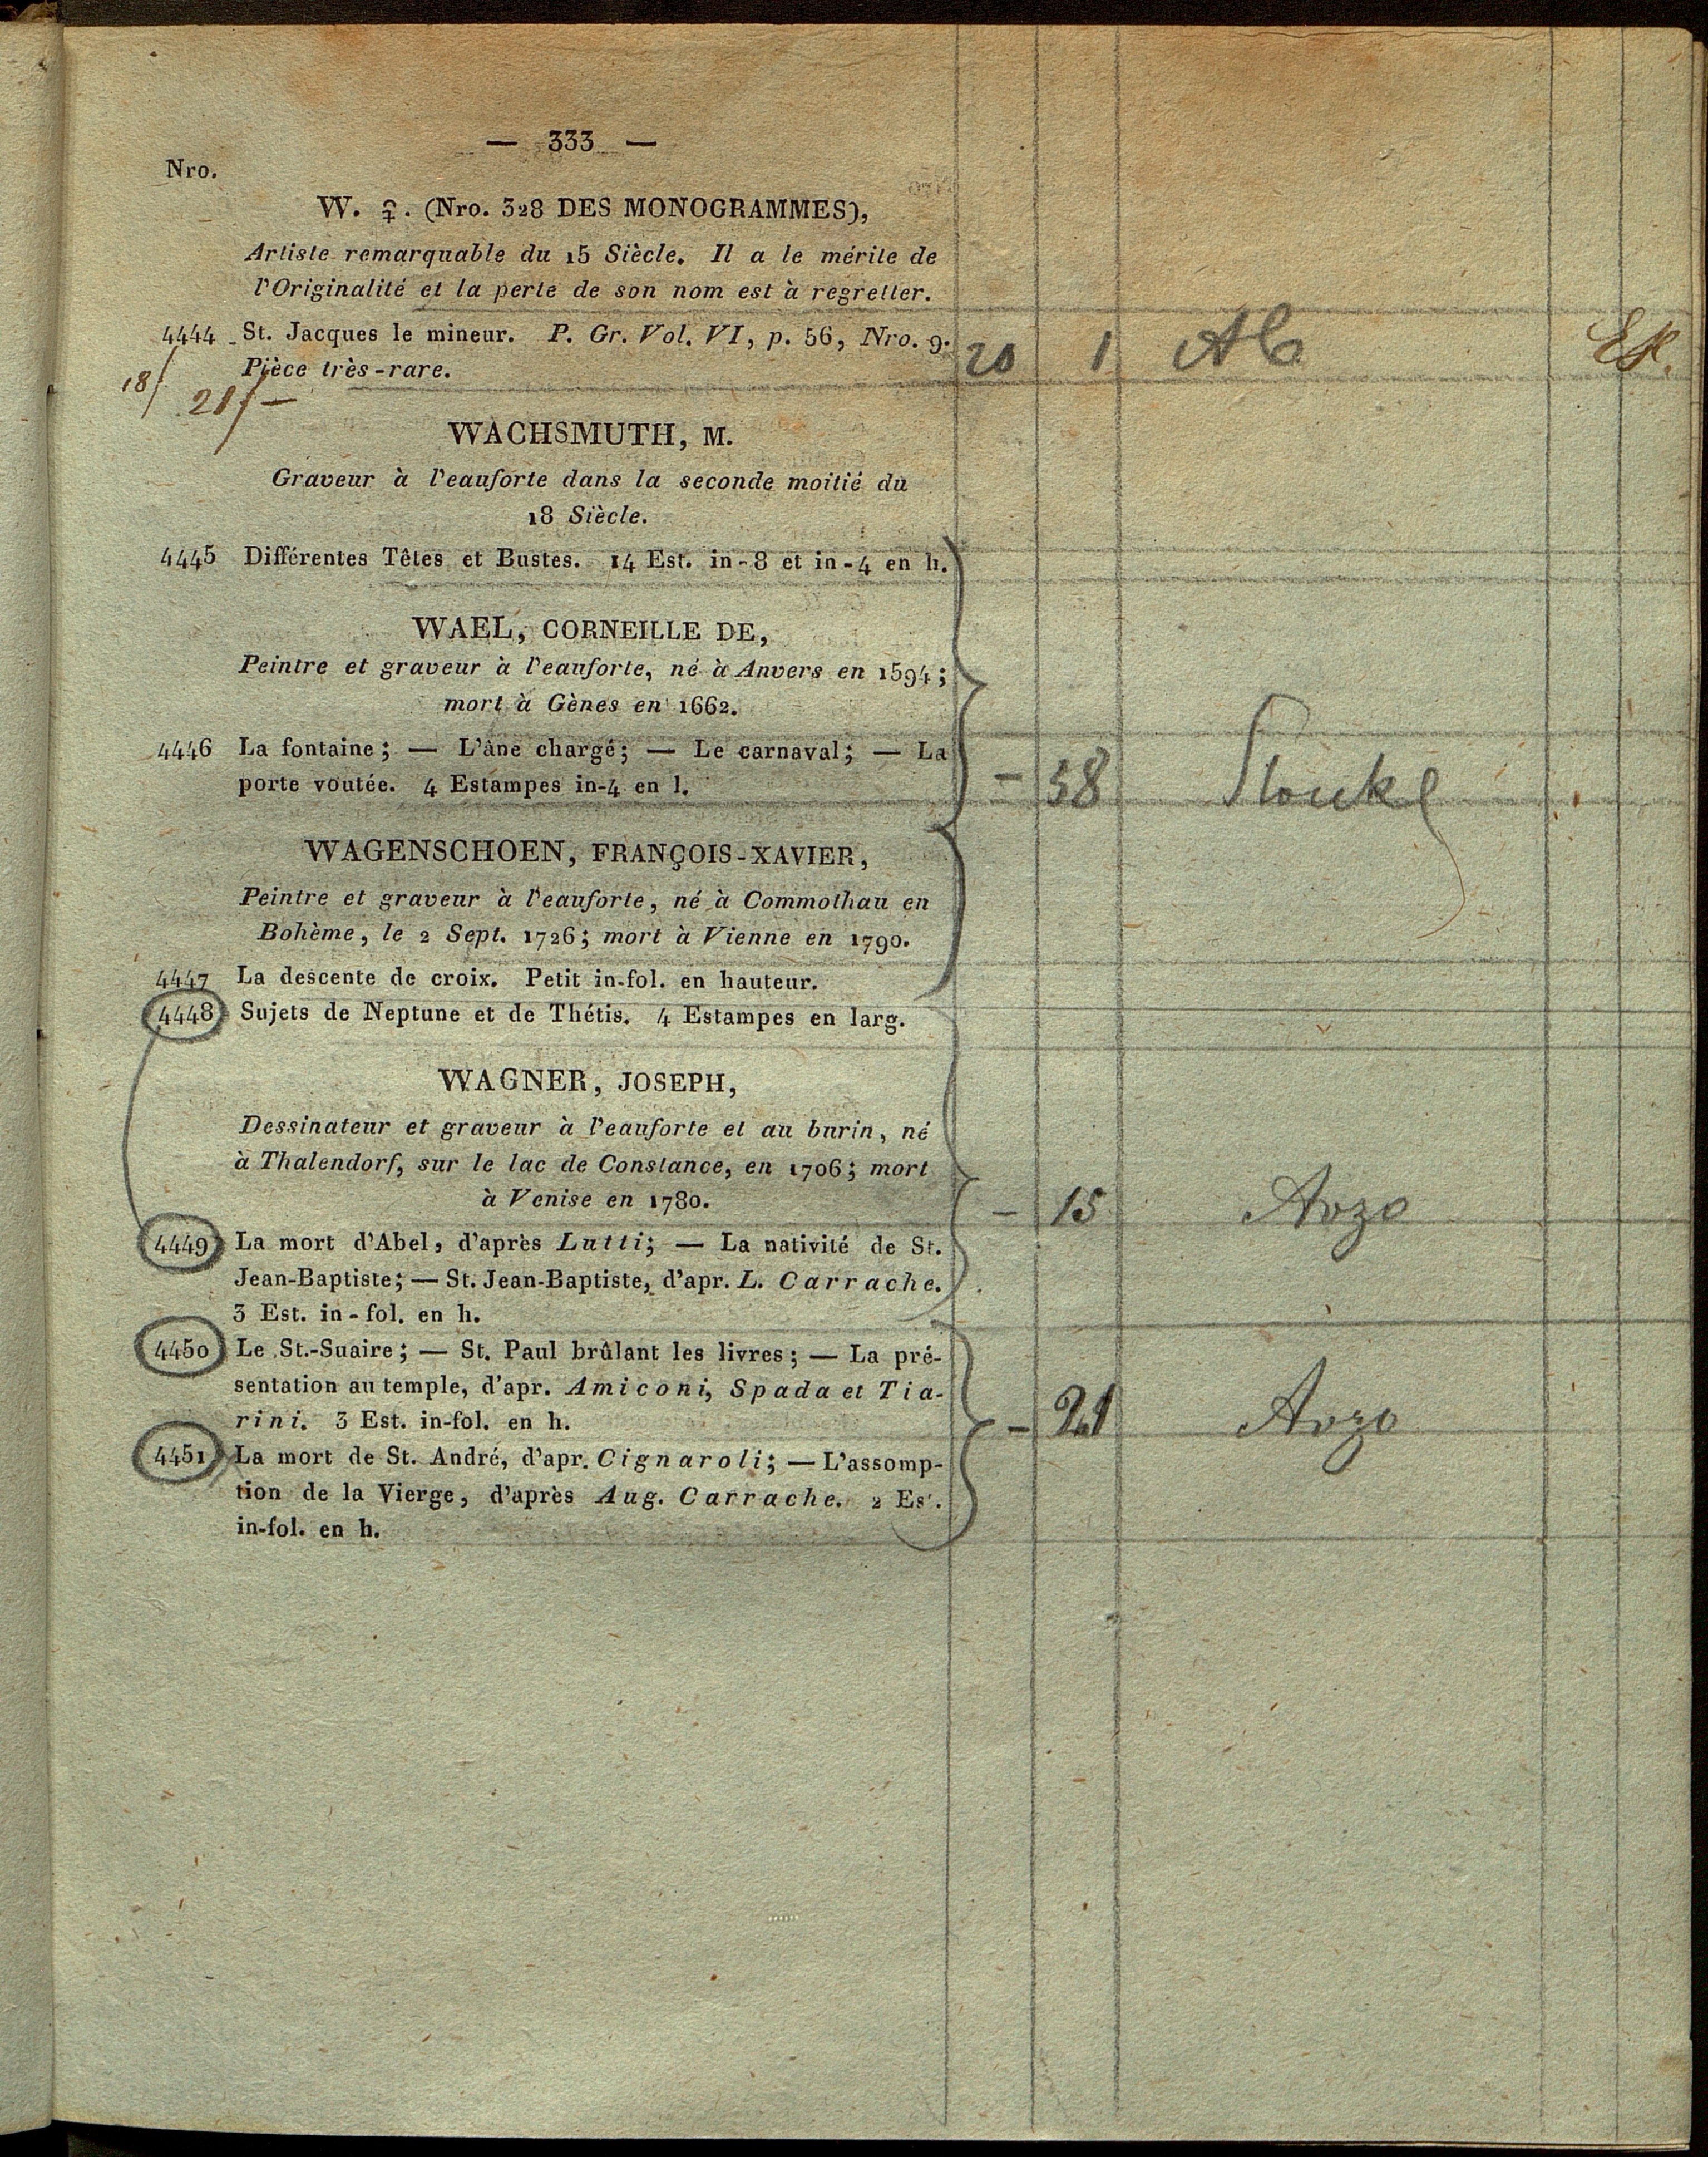 — 333 —
Nro.
W. ♀. (Nro. 328 DES MONOGRAMMES),
Artiste remarquable du 15 Siècle. Il a le mérite de
l'Originalité et la perte de son nom est à regretter.
4444 St. Jacques le mineur. P. Gr. Vol. VI, p. 56, Nro. 9. 20 1 Alb
Pièce très-rare.
18/ 21/—
WACHSMUTH, M.
Graveur à l'eauforte dans la seconde moitié du
18 Siècle.
4445 Différentes Têtes et Bustes. 14 Est. in-8 et in-4 en h.
WAEL, CORNEILLE DE,
Peintre et graveur à l'eauforte, né à Anvers en 1594;
mort à Gènes en 1662.
4446 La fontaine; — L'âne chargé; — Le carnaval; — La
porte voutée. 4 Estampes in-4 en l. — 38
WAGENSCHOEN, FRANÇOIS-XAVIER,
Peintre et graveur à l'eauforte, né à Commothau en
Bohème, le 2 Sept. 1726; mort à Vienne en 1790.
4447 La descente de croix. Petit in-fol. en hauteur.
4448 Sujets de Neptune et de Thétis. 4 Estampes en larg.
WAGNER, JOSEPH,
Dessinateur et graveur à l'eauforte et au burin, né
à Thalendorf, sur le lac de Constance, en 1706; mort
à Venise en 1780. — 15 Arzo
4449 La mort d'Abel, d'après Lutti; — La nativité de St.
Jean-Baptiste; — St. Jean-Baptiste, d'apr. L. Carrache.
3 Est. in-fol. en h.
4450 Le St.-Suaire; — St. Paul brûlant les livres; — La pré-
sentation au temple, d'apr. Amiconi, Spada et Tia-
rini. 3 Est. in-fol. en h. — 21 Arzo
4451 La mort de St. André, d'apr. Cignaroli; — L'assomp-
tion de la Vierge, d'après Aug. Carrache. 2 Est.
in-fol. en h.